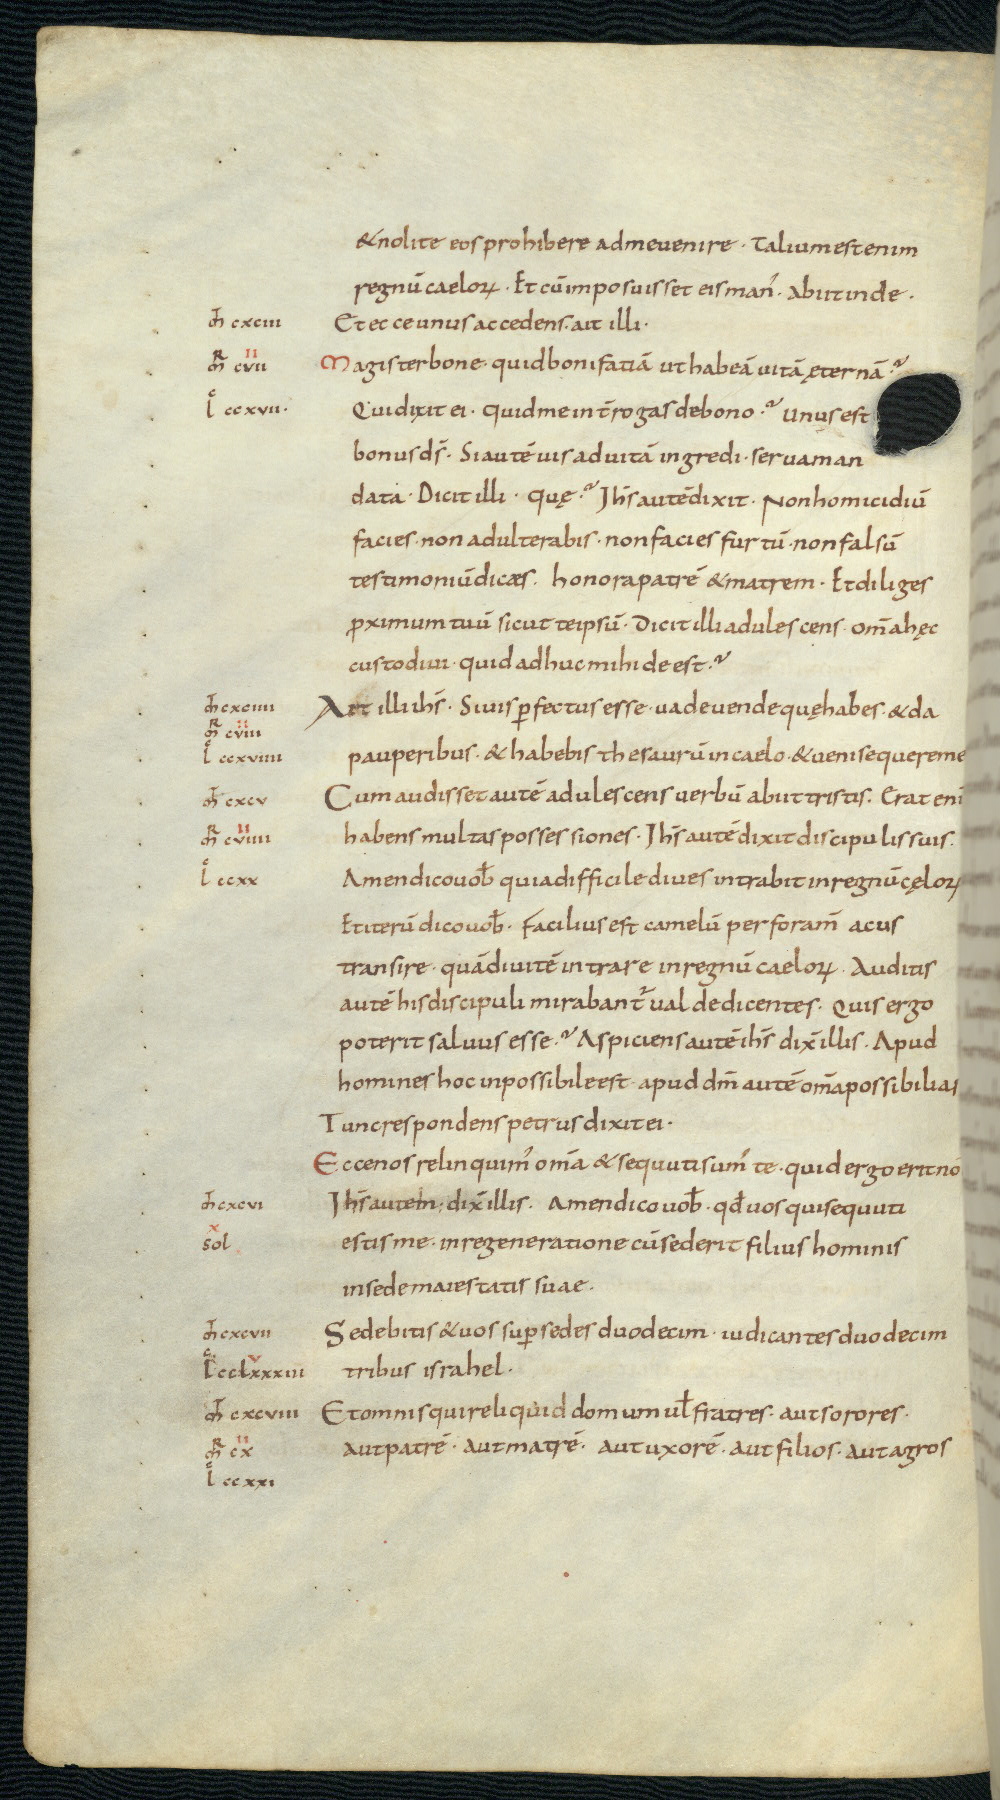 &nolite eos prohibere ad me venire · Talium est enim
regnū caeloꝝ · Et cū imposuisset eis man᷒ · abiit inde ·
mͭ cxciii Et ecce unus accedens · ait illi ·
mʀ cvii II Magister bone · quid boni faciā ut habeā vitā ęternā ?
l ccxvii · Qui dixit ei · Quid me int̄rogas de bono ? Unus est
bonus d̄s · Si autē vis ad vitā ingredi · serva man
data · Dicit illi · Quę ? Ih̄s autē dixit · Non homicidiū
facies · non adulterabis · non facies furtū · non falsū
testimoniū dicæs · honora patrē & matrem · Et diliges
ꝓximum tuū sicut teipsū · Dicit illi adulescens · Om̄a hęc
custodivi · quid adhuc mihi deest ?
mͭ cxciiii Ait illi ih̄s · Si vis ꝑfectus esse · vade vende quę habes · & da
mʀ cviii II
l ccxviiii pauperibus · & habebis thesaurū in caelo · & veni sequere me
mͭ cxcv Cum audisset autē adulescens verbū abiit tristis · Erat eni
mʀ cviiii II habens multas possessiones · Ih̄s autē dixit discipulis suis ·
l ccxx Amen dico vob̄ quia difficile dives intrabit in regnū cęloꝝ
Et iterū dico vob̄ · Facilius est camelū per foram̄ acus
transire · quā divitē intrare in regnū caeloꝝ · Auditis
autē his discipuli mirabant᷑ valde dicentes · Quis ergo
poterit salvus esse ? Aspiciens autē ih̄s dix̄ illis · Apud
homines hoc inpossibile est · apud dm̄ autē om̄a possibilia s
Tunc respondens petrus dixit ei ·
Ecce nos relinquim᷒ om̄a & sequuti sum᷒ te · quid ergo erit no
mͭ cxcvi Ih̄s autem · dix̄ illis · Amen dico vob̄ · qd̄ vos qui sequuti
sol X estis me · in regeneratione cū sederit filius hominis
in sede maiestatis suae ·
mͭ cxcvii Sedebitis & vos suꝑ sedes duodecim · iudicantes duodecim
l cclxxxiii V tribus israhel ·
mͭ cxcviii Et omnis qui reliquid domum ul̄ fratres · aut sorores ·
mʀ cx II aut patrē · aut matrē · aut uxorē · aut filios · aut agros
l ccxxi